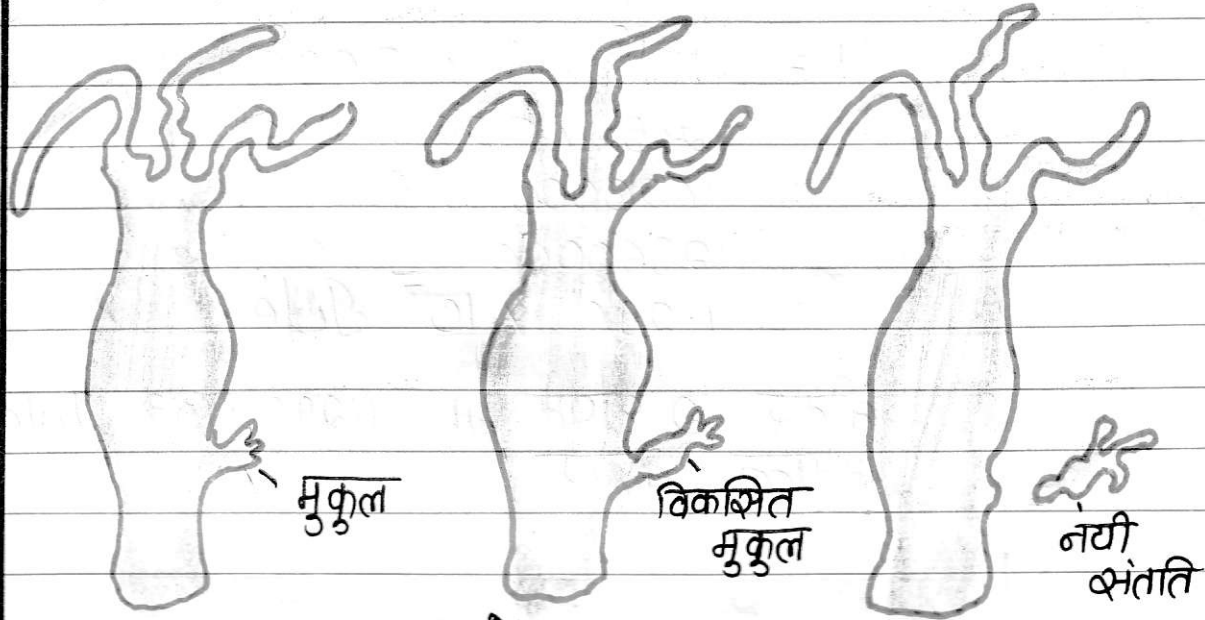 मुकुल
विकसित
मुकुल
नयी
संतति